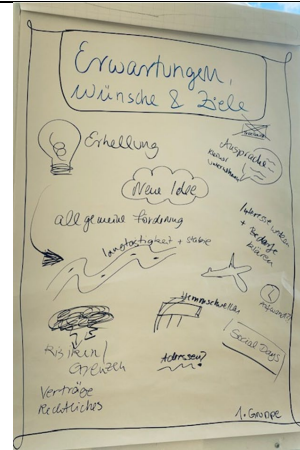 Erwartungen,
Wünsche & Ziele
Erhellung
Ansprache
Neue Idee
allgemeine Förderung
Interesse wecken
+ Bedarfe
langfristigkeit + stabile
Hemmschwellen
Social Days
Risiken/
Grenzen
Adressen?
Verträge
Rechtliches
1. Gruppe